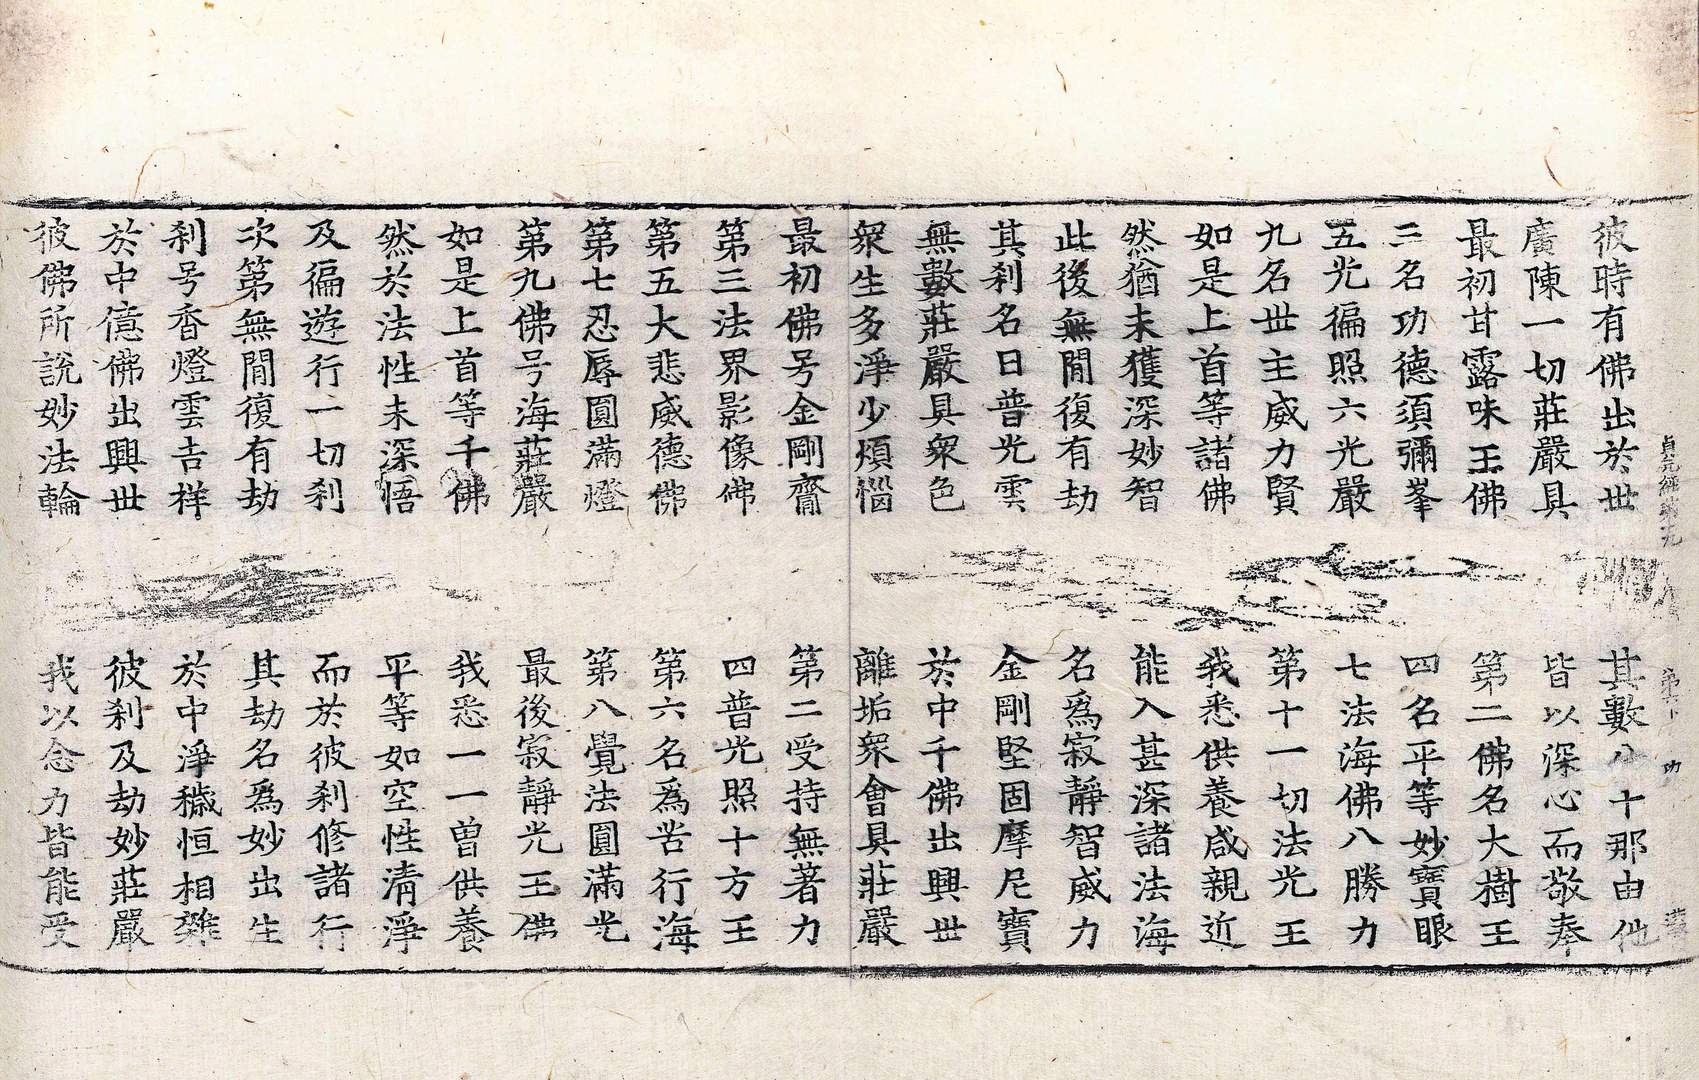 貞元經第十九 第 功
彼時有佛出於世 其數八十那由他
廣陳一切莊嚴具 皆以深心而敬奉
最初甘露味王佛 第二佛名大樹王
三名功德須彌峯 四名平等妙寶眼
五光徧照六光嚴 七法海佛八勝力
九名世主威力賢 第十一切法光王
如是上首等諸佛 我悉供養咸親近
然猶未獲深妙智 能入甚深諸法海
此後無閒復有劫 名爲寂靜智威力
其刹名曰普光雲 金剛堅固摩尼寶
無數莊嚴具衆色 於中千佛出興世
衆生多淨少煩惱 離垢衆會具莊嚴
最初佛号金剛齎 第二受持無著力
第三法界影像佛 四普光照十方王
第五大悲威德佛 第六名爲苦行海
第七忍辱圓滿燈 第八覺法圓滿光
第九佛号海莊嚴 最後寂靜光王佛
如是上首等千佛 我悉一一曾供養
然於法性未深悟 平等如空性清淨
及徧遊行一切刹 而於彼刹修諸行
次第無閒復有劫 其劫名爲妙出生
刹号香燈雲吉祥 於中淨穢恒相雜
於中億佛出興世 彼刹及劫妙莊嚴
彼佛所說妙法輪 我以念力皆能受